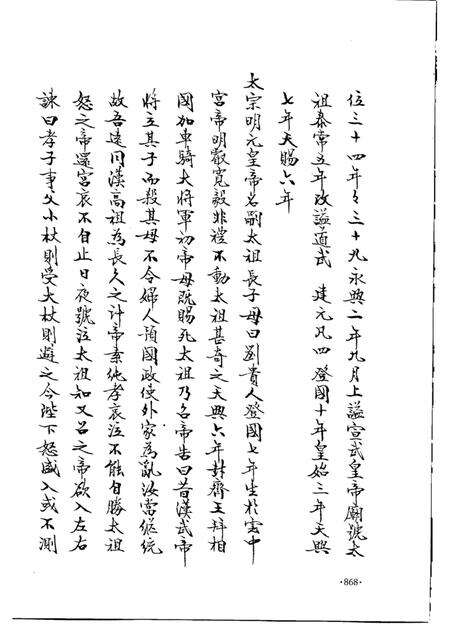 位三十四年年三十九永興二年九月上謚宣武皇帝廟號太
祖泰常五年改謚道武 建元凡四登國十年皇始三年天興
七年天賜六年
太宗明元皇帝名嗣太祖長子母曰劉貴人登國七年生於雲中
宮帝明叡寬毅非禮不動太祖甚奇之天興六年封齊王拜相
國加車騎大將軍初帝母既賜死太祖乃召帝告曰昔漢武帝
將立其子而殺其母不令婦人預國政使外家為亂汝當繼統
故吾遠同漢高祖為長久之計帝素純孝哀泣不能自勝太祖
怒之帝還宮哀不自止日夜號泣太祖知又召之帝欲入左右
諫曰孝子事父小杖則受大杖則避之今陛下怒盛入或不測
·868·